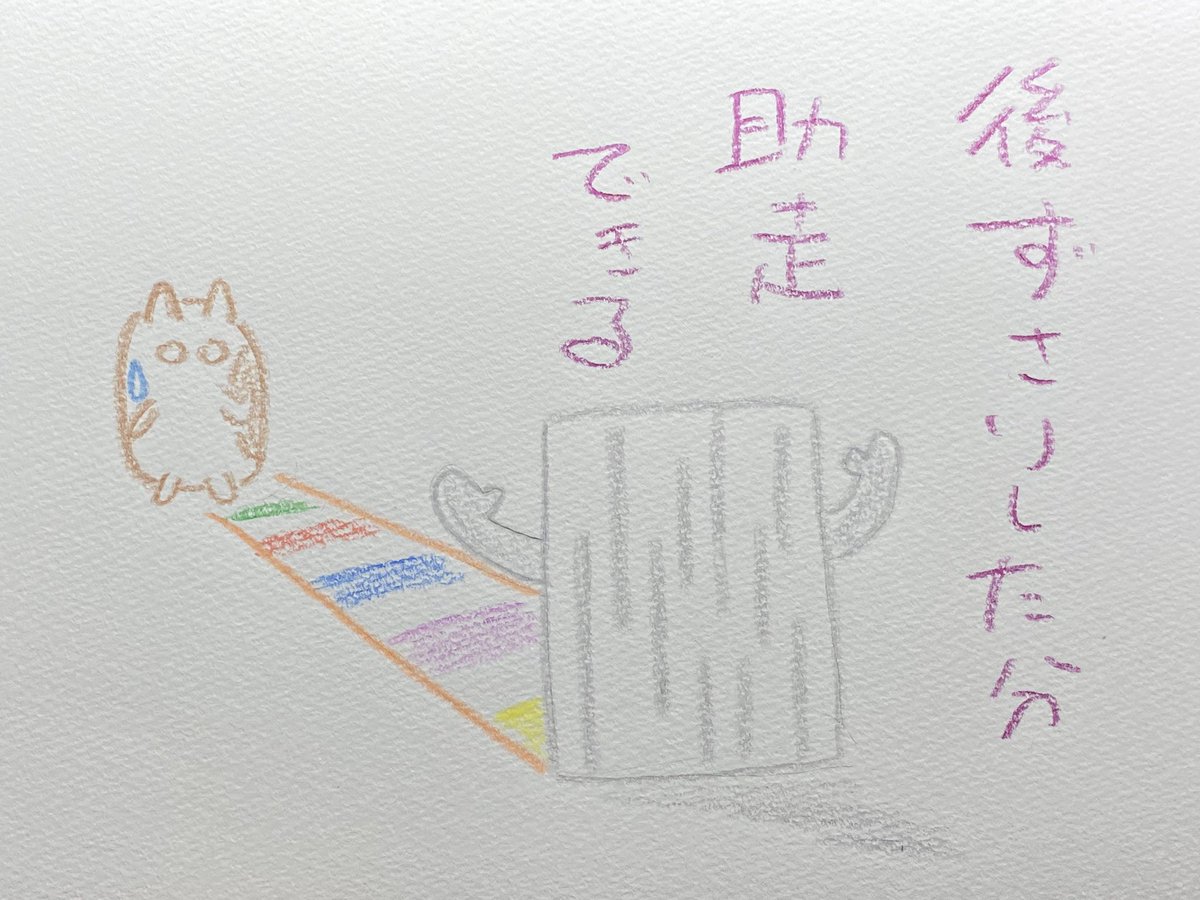 後ずさりした分
助走
できる